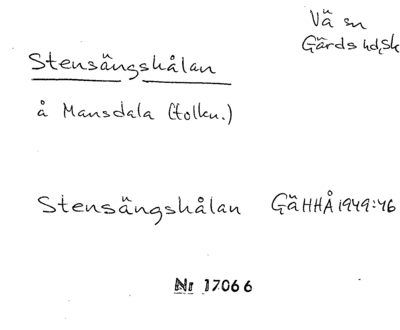 Vä sn
Gärds hd, Sk
Stensängshålan
å Mansdala (tolkn.)
Stensängshålan GäHHÅ 1949:46
Nr 17066